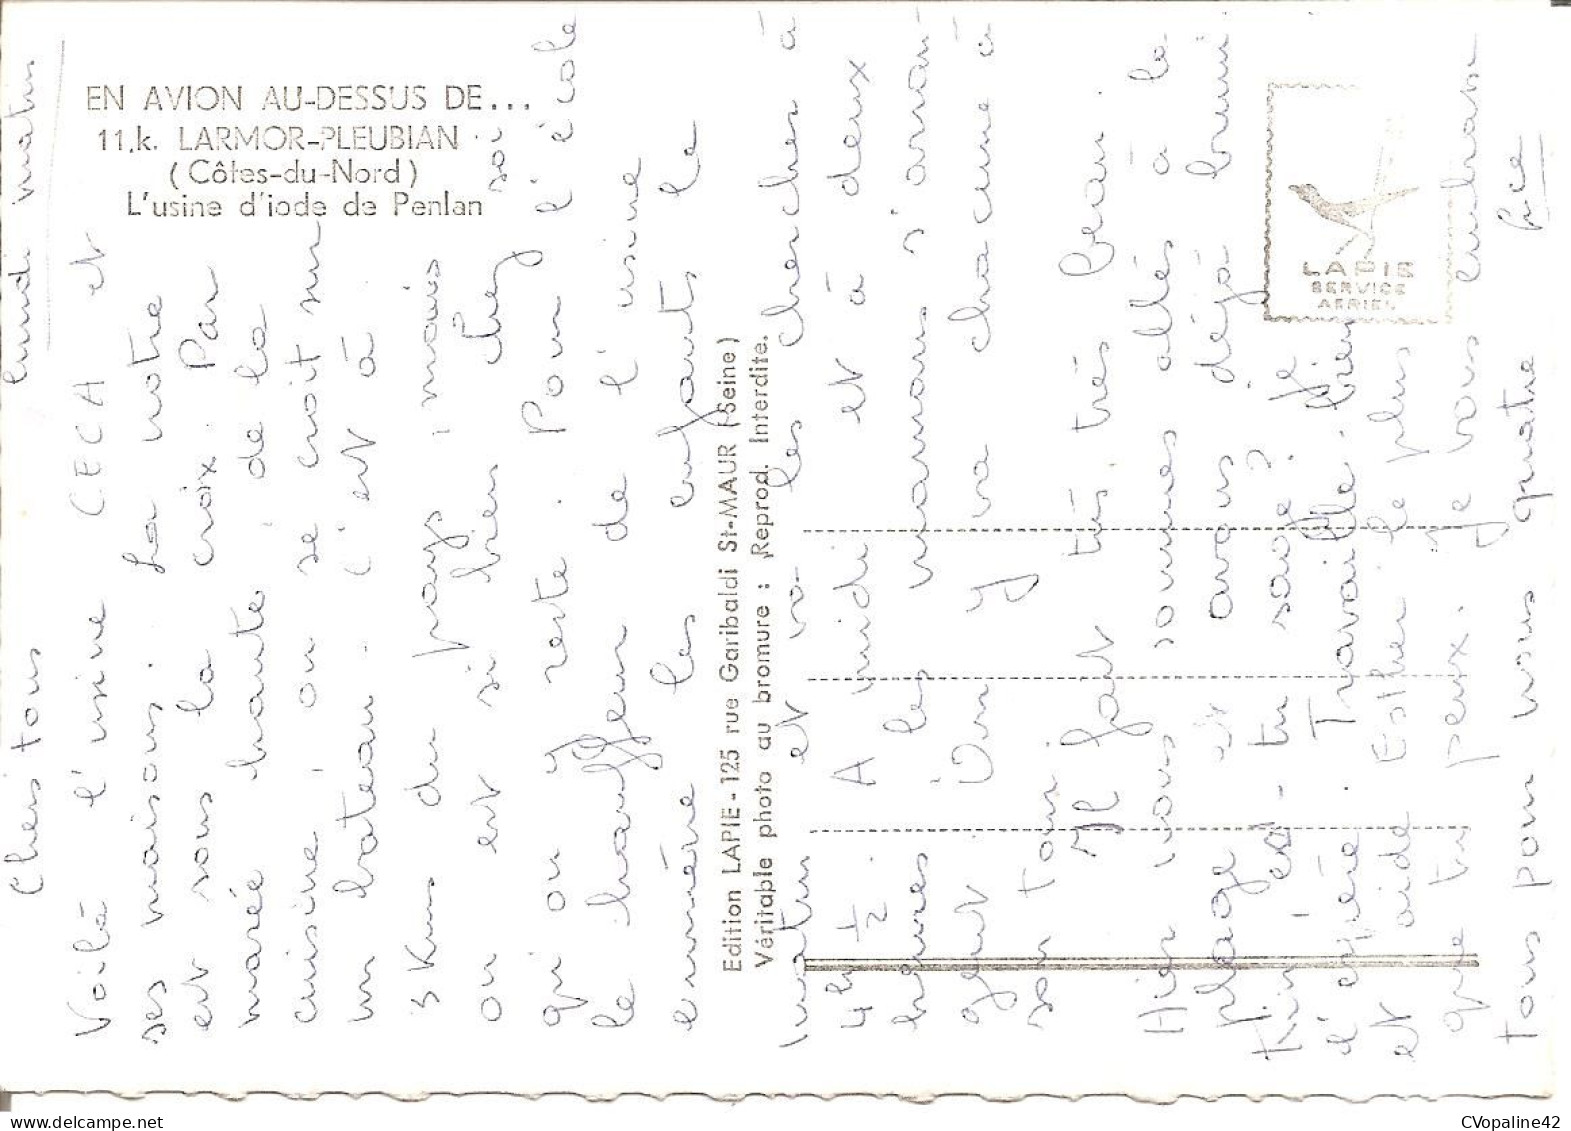 EN AVION AU-DESSUS DE...
11.k. LARMOR-PLEUBIAN
(Côtes-du-Nord)
L'usine d'iode de Penlan
LAPIE
SERVICE
AERIEN
Edition LAPIE - 125 rue Garibaldi St-MAUR (Seine)
Véritable photo au bromure : Reprod. Interdite.
lundi matin
Chers tous
Voilà l'usine CECA et
ses maisons. La notre
est sous la croix. Par
marée haute de la
cuisine, on se croit sur
un bateau. C'est à
3 Kms du pays, mais
on est si bien chez soi
qu'on y reste. Pour l'école
le chauffeur de l'usine
emmène les enfants le
matin et va les chercher à
4h 1/2. A midi et à deux
heures les mamans s'arran-
gent. On y va chacune à
son tour.
Il fait très très beau.
Hier nous sommes allés à la
plage et avons déjà bruni
es-tu sage? Je
l'espère. Travaille bien
et aide Esther le plus
que tu peux. Je vous embrasse
tous pour nous quatre